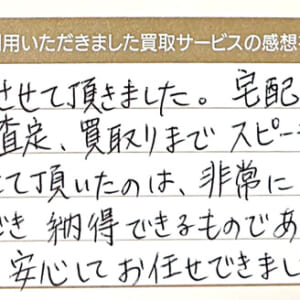 用いただきました買取サービスの感想
させて頂きました。宅配
査定、買取りまで スピー
て頂いたのは、非常に
でき 納得できるものであ
安心してお任せできまし